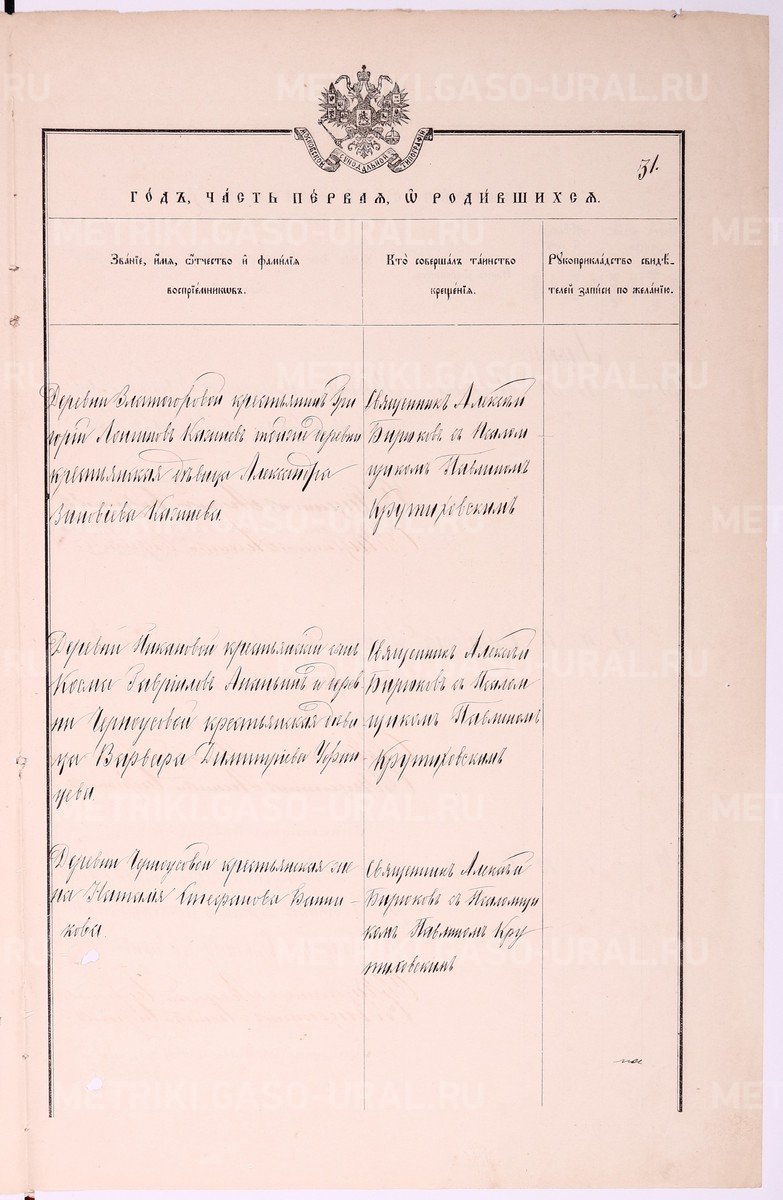 METRIKI.GASO-URAL.RU
МОСКОВСКОЙ СѴНОДАЛЬНОЙ ТИПОГРАФІИ
31.
ГО́ДЪ, ЧА́СТЬ ПЕ́РВАЯ, Ѡ РОДИ́ВШИХСЯ.
Зва́нїе, и҆́мя, ѻ҆́тчество и҆ фами́лїя
воспрїе́мникѡвъ.
Кто̀ соверша́лъ та́инство
креще́нїя.
Рꙋкоприкла́дство свидѣ́-
телей за́писи по жела́нїю.
Деревни Златогоровой крестьянинъ Гри
горій Логиновъ Качиевъ тойже деревни
крестьянская дѣвица Александра
Зиновіева Качиева.
Священникъ Алексѣй
Бирюковъ съ Псалом
щикомъ Павлиномъ
Крутиховскимъ
Деревни Никановой крестьянскій сынъ
Косма Гавріиловъ Ананьинъ и дерев
ни Черноусовой крестьянская дѣви
ца Варвара Димитріева
Священникъ Алексѣй
Бирюковъ съ Псалом
щикомъ Павлиномъ
Крутиховскимъ
Деревни Черноусовой крестьянская же
на Наталія Стефанова
Священникъ Алексѣй
Бирюковъ съ Псаломщи
комъ Павлиномъ Кру
тиховскимъ